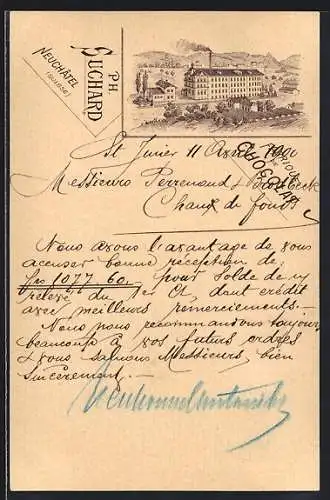 NEUCHÂTEL
(SUISSE)
PH.
SUCHARD
FABRIQUE
DE
CHOCOLAT
St Imier 11 Avril 1900
Messieurs Perrenoud &
Chaux de fonds
Nous avons l'avantage de vous
accuser bonne réception de
frs 1077 60. pour solde de n/
relevé du 1er Ct, dont crédit
avec meilleurs remerciements. —
Nous nous recommandons toujours
beaucoup à vos futurs ordres
& vous saluons Messieurs, bien
sincèrement. —